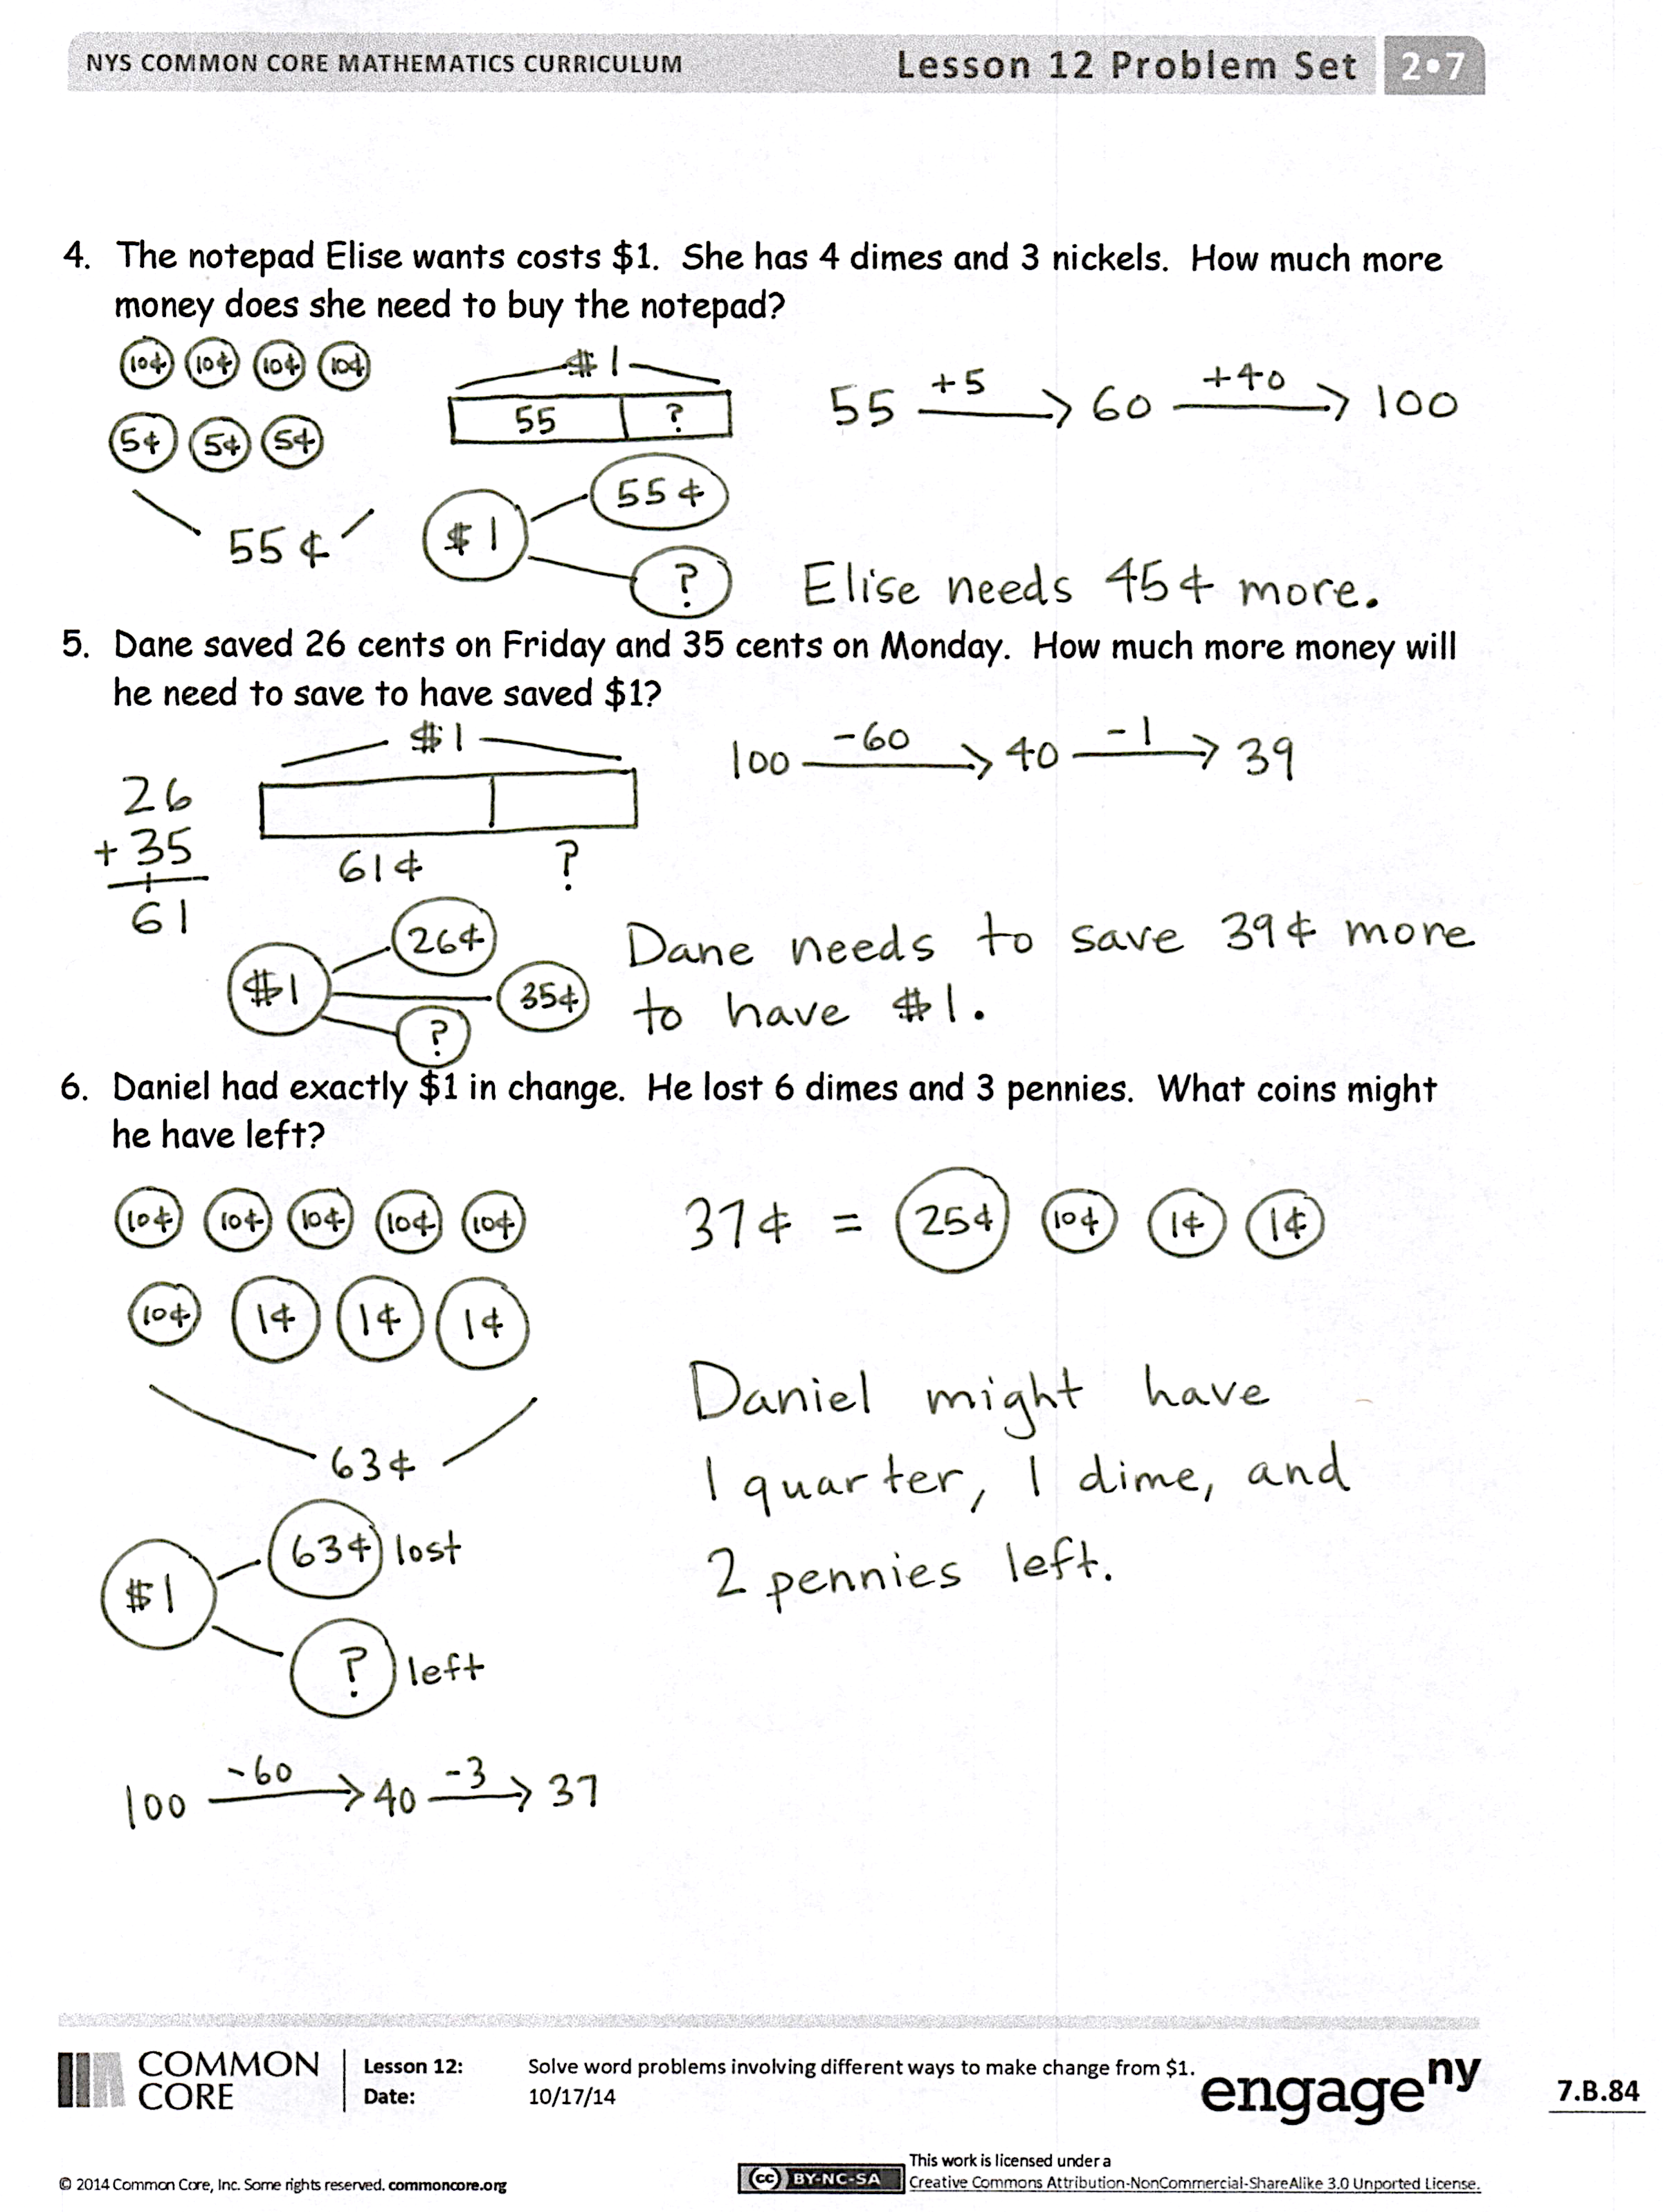 NYS COMMON CORE MATHEMATICS CURRICULUM Lesson 12 Problem Set 2•7
4. The notepad Elise wants costs $1. She has 4 dimes and 3 nickels. How much more
money does she need to buy the notepad?
10¢ 10¢ 10¢ 10¢
5¢ 5¢ 5¢
55¢
$1
55 ?
$1 55¢ ?
55 +5 → 60 +40 → 100
Elise needs 45¢ more.
5. Dane saved 26 cents on Friday and 35 cents on Monday. How much more money will
he need to save to have saved $1?
26
+ 35
1
61
$1
61¢ ?
$1 26¢ 35¢ ?
100 -60 → 40 -1 → 39
Dane needs to save 39¢ more
to have $1.
6. Daniel had exactly $1 in change. He lost 6 dimes and 3 pennies. What coins might
he have left?
10¢ 10¢ 10¢ 10¢ 10¢
10¢ 1¢ 1¢ 1¢
63¢
$1 63¢ lost
? left
100 -60 → 40 -3 → 37
37¢ = 25¢ 10¢ 1¢ 1¢
Daniel might have
1 quarter, 1 dime, and
2 pennies left.
COMMON
CORE
Lesson 12: Solve word problems involving different ways to make change from $1.
Date: 10/17/14
engageny
7.B.84
© 2014 Common Core, Inc. Some rights reserved. commoncore.org
cc BY-NC-SA
This work is licensed under a
Creative Commons Attribution-NonCommercial-ShareAlike 3.0 Unported License.